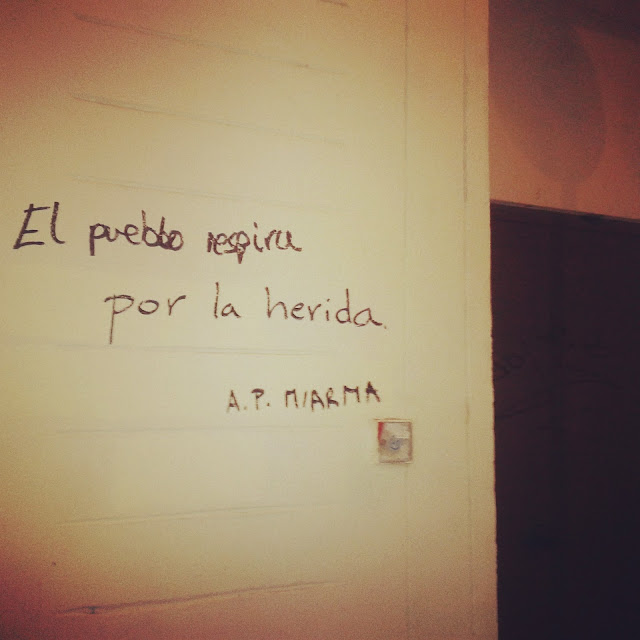 El pueblo respira
por la herida.
A.P. MIARMA